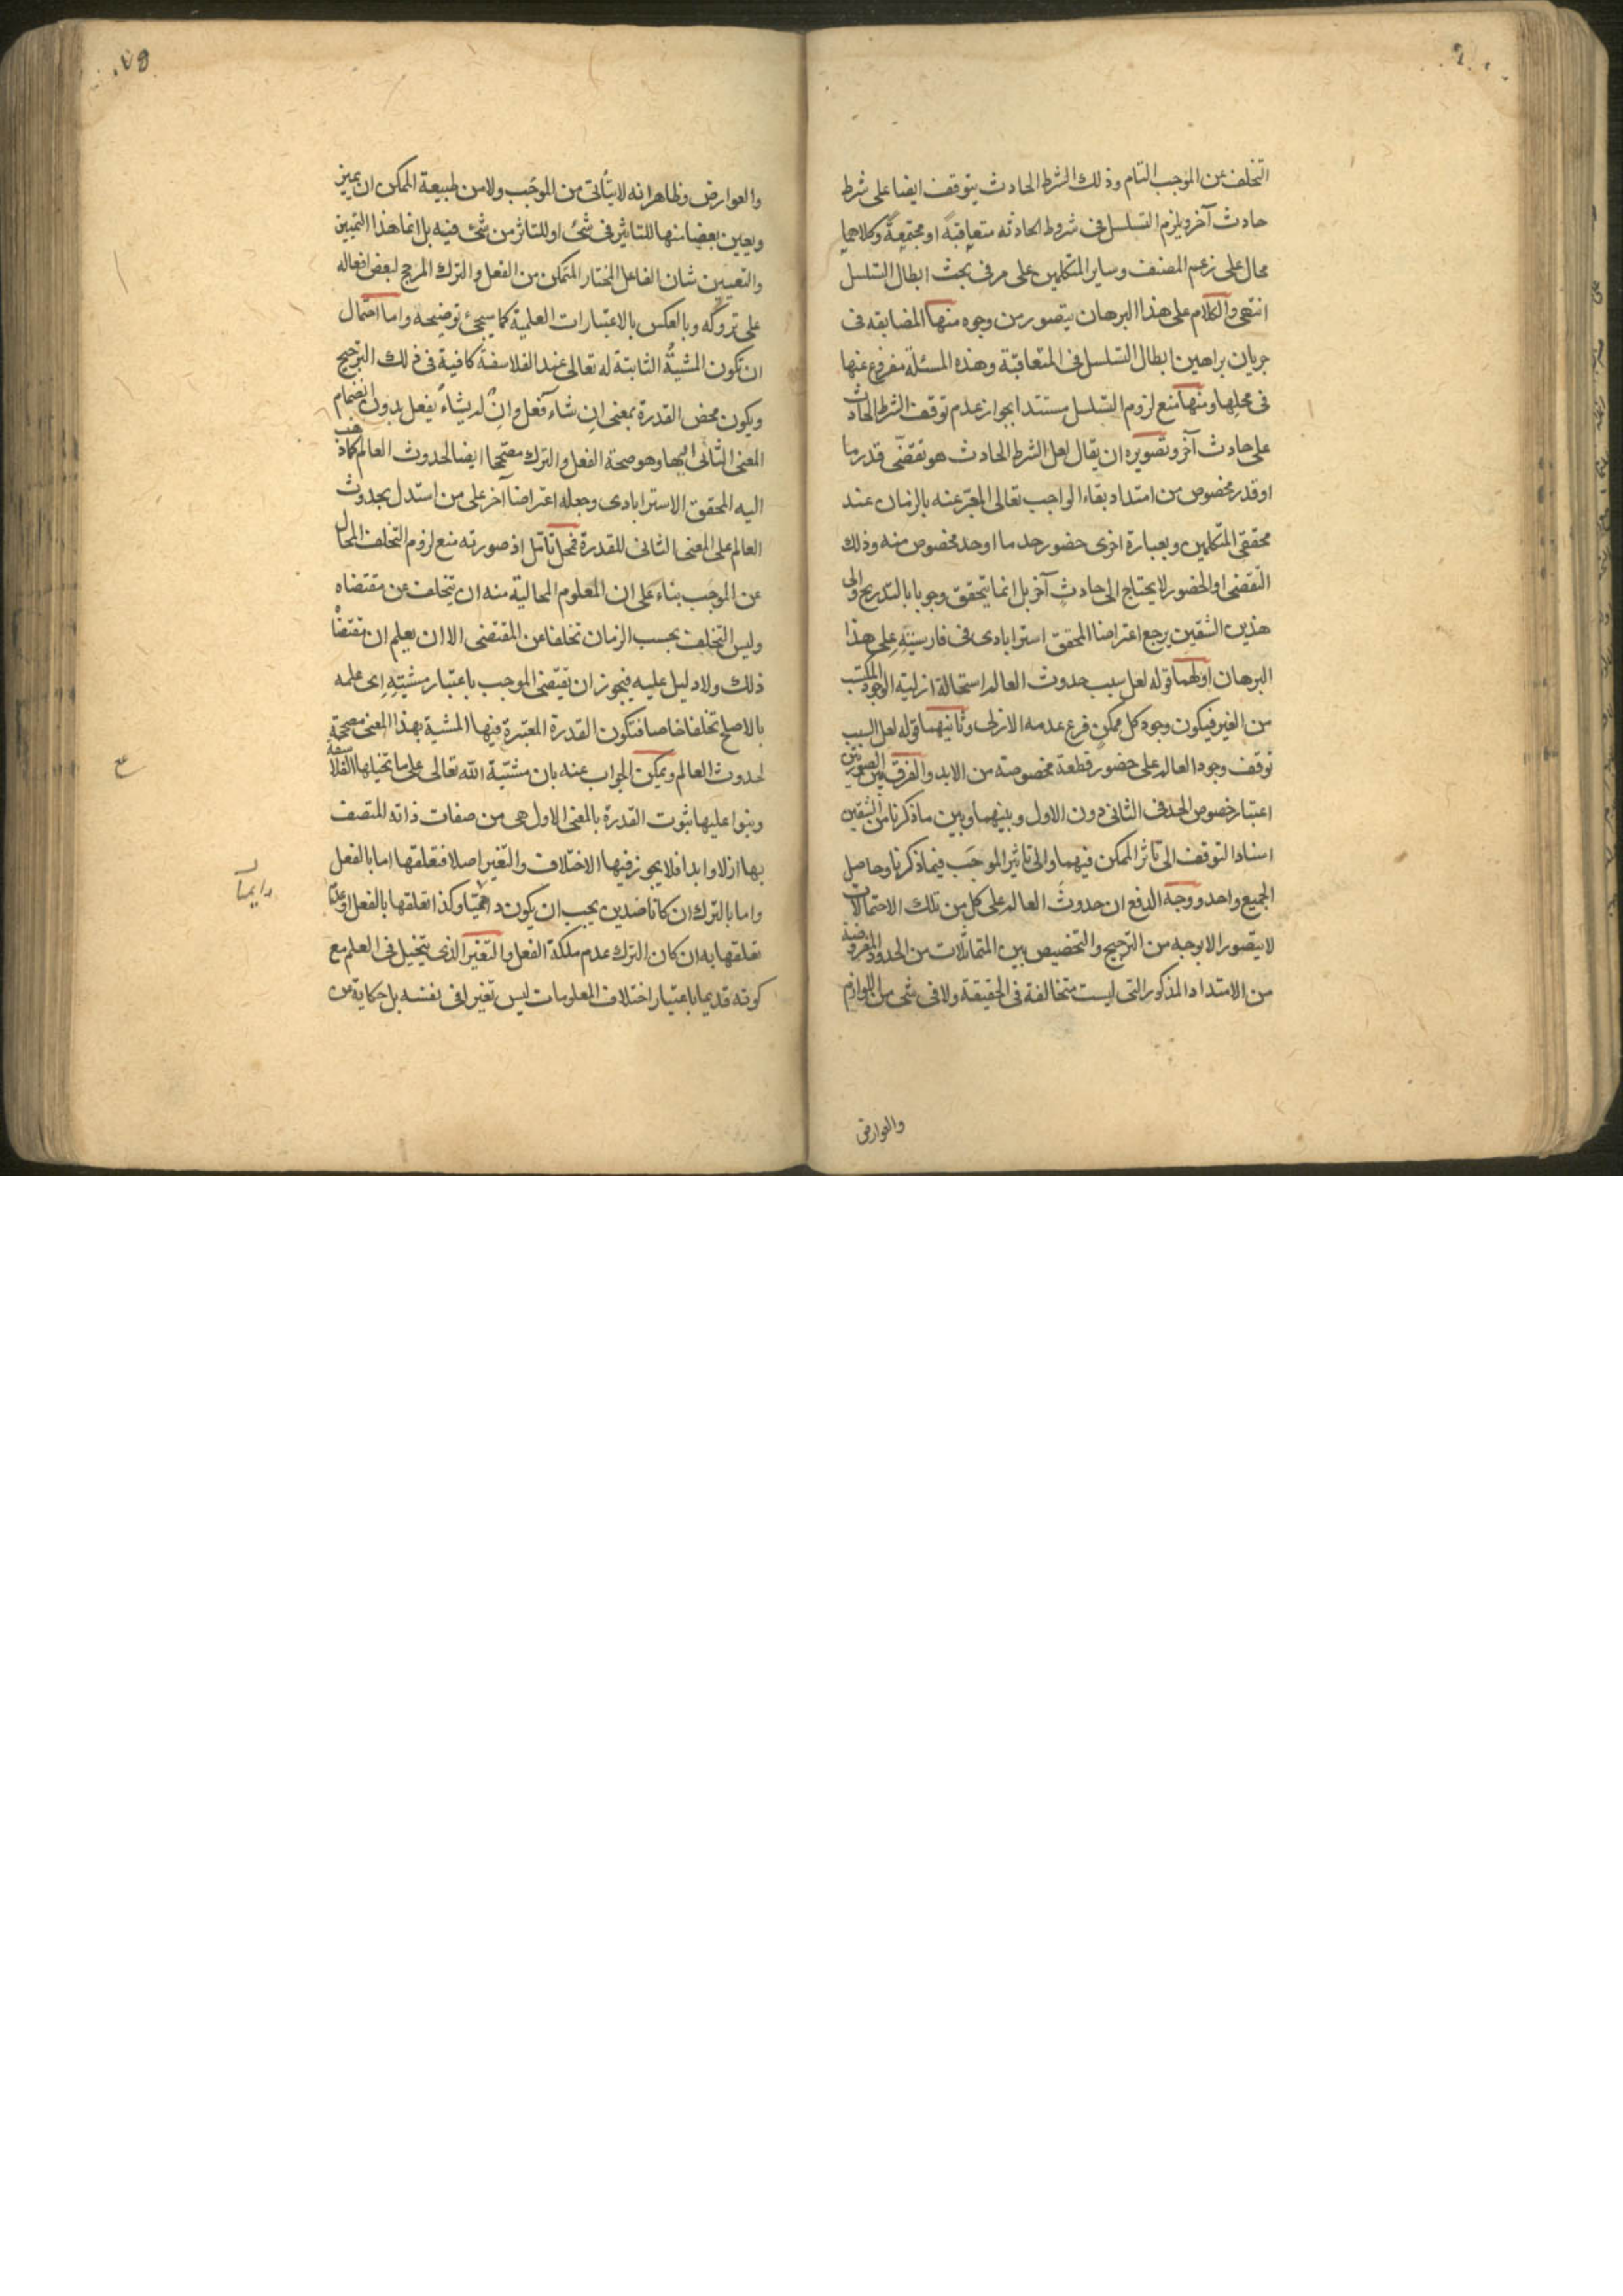 التخلف عن الموجب التام وذلك الشرط الحادث يتوقف ايضا على شرط
حادث آخر ويلزم التسلسل فى شروط الحادثه متعاقبةً او مجتمعةً وكلاهما
محال على زعم المصنف وساير المتكلمين على مر فى بحث ابطال التسلسل
انتهى والكلام على هذا البرهان يتصور من وجوه منها المضايقه فى
جريان براهين ابطال التسلسل فى المتعاقبة وهذه المسئلة مفروغ عنها
فى محلها ومنها منع لزوم التسلسل مستندا بجواز عدم توقف الشرط الحادث
على حادث آخر وتصويره ان يقال لعل الشرط الحادث هو تقضّى قدر ما
او قدر مخصوص من امتداد بقاء الواجب تعالى المعبّر عنه بالزمان عند
محققى المتكلمين وبعبارة اخرى حضور حد ما او حد مخصوص منه وذلك
التقضى او الحضور لا يحتاج الى حادثٍ آخر بل انما يتحقق وجوبا بالتدريج والى
هذين الشقين يرجع اعتراضا المحقق استرابادى فى فارسيّتِهِ على هذا
البرهان اولهما قوله لعل سبب حدوث العالم استحالة ازلية الوجود المكتسب
من الغير فيكون وجود كل ممكن فرع عدمه الازلى وثانيهما قوله لعل السبب
توقف وجود العالم على حضور قطعة مخصوصة من الابد والفرق بين الصورتين
اعتبار خصوص الحد فى الثانى دون الاول وبينهما وبين ما ذكرنا من الشقين
اسناد التوقف الى تاثر الممكن فيهما والى تاثير الموجَب فيما ذكرنا وحاصل
الجميع واحد ووجه الدفع ان حدوثَ العالم على كل من تلك الاحتمالات
لا يتصور الا بوجه من الترجيح والتخصيص بين المتماثلات من الحدود المفروضة
من الامتداد المذكور التى ليست متخالفة فى الحقيقة ولا فى شى من اللوازم
والعوارض
والعوارض وظاهر انه لا يتأتى من الموجَب ولا من طبيعة الممكن ان يميز
ويعين بعضا منها للتاثير فى شئ او للتاثر من شئ فيه بل انما هذا التمييز
والتعيين شان الفاعل المختار المتمكن من الفعل والترك المرجح لبعض افعاله
على تروكه وبالعكس بالاعتبارات العلمية كما سيجئ توضيحه واما احتمال
ان تكون المشيةُ الثابتة له تعالى عند الفلاسفة كافية فى ذلك الترجيح
ويكون محض القدرة بمعنى ان شاء فعل وان لم يشاء يفعل بدون انضمام
المعنى الثانى اليها وهو صحة الفعل والترك مصححا ايضا لحدوث العالم كما ذهب
اليه المحقق الاسترابادى وجعله اعتراضا آخر على من استدل بحدوث
العالم على المعنى الثانى للقدرة فمحل تامّل اذ صورته منع لزوم التخلف المحال
عن الموجَب بناءً على ان المعلوم المحالية منه ان يتخلف عن مقتضاه
وليس التخلف بحسب الزمان تخلفا عن المقتضى الا ان يعلم ان مقتضاه
ذلك ولا دليل عليه فيجوز ان يقتضى الموجب باعتبار مشيتهِ اى علمه
بالاصلح تخلفا خاصا فتكون القدرة المعتبرة فيها المشية بهذا المعنى مصححة
لحدوث العالم ويمكن الجواب عنه بان مشيّة اللّه تعالى على ما تخيلها الفلاسفة
وبنوا عليها ثبوت القدرة بالمعنى الاول هى من صفات ذاته المتصف
بها ازلا وابدا فلا يجوز فيها الاختلاف والتغير اصلا فتعلقها اما بالفعل
واما بالترك ان كانا ضدين يجب ان يكون وكذا تعلقها بالفعل او عدم
تعلقها به ان كان الترك عدم ملكة الفعل والتغير الذى يتخيل فى العلم مع
كونه قديما باعتبار اختلاف المعلومات ليس تغيرا فى نفسه بل حكاية عن
ع
دايما